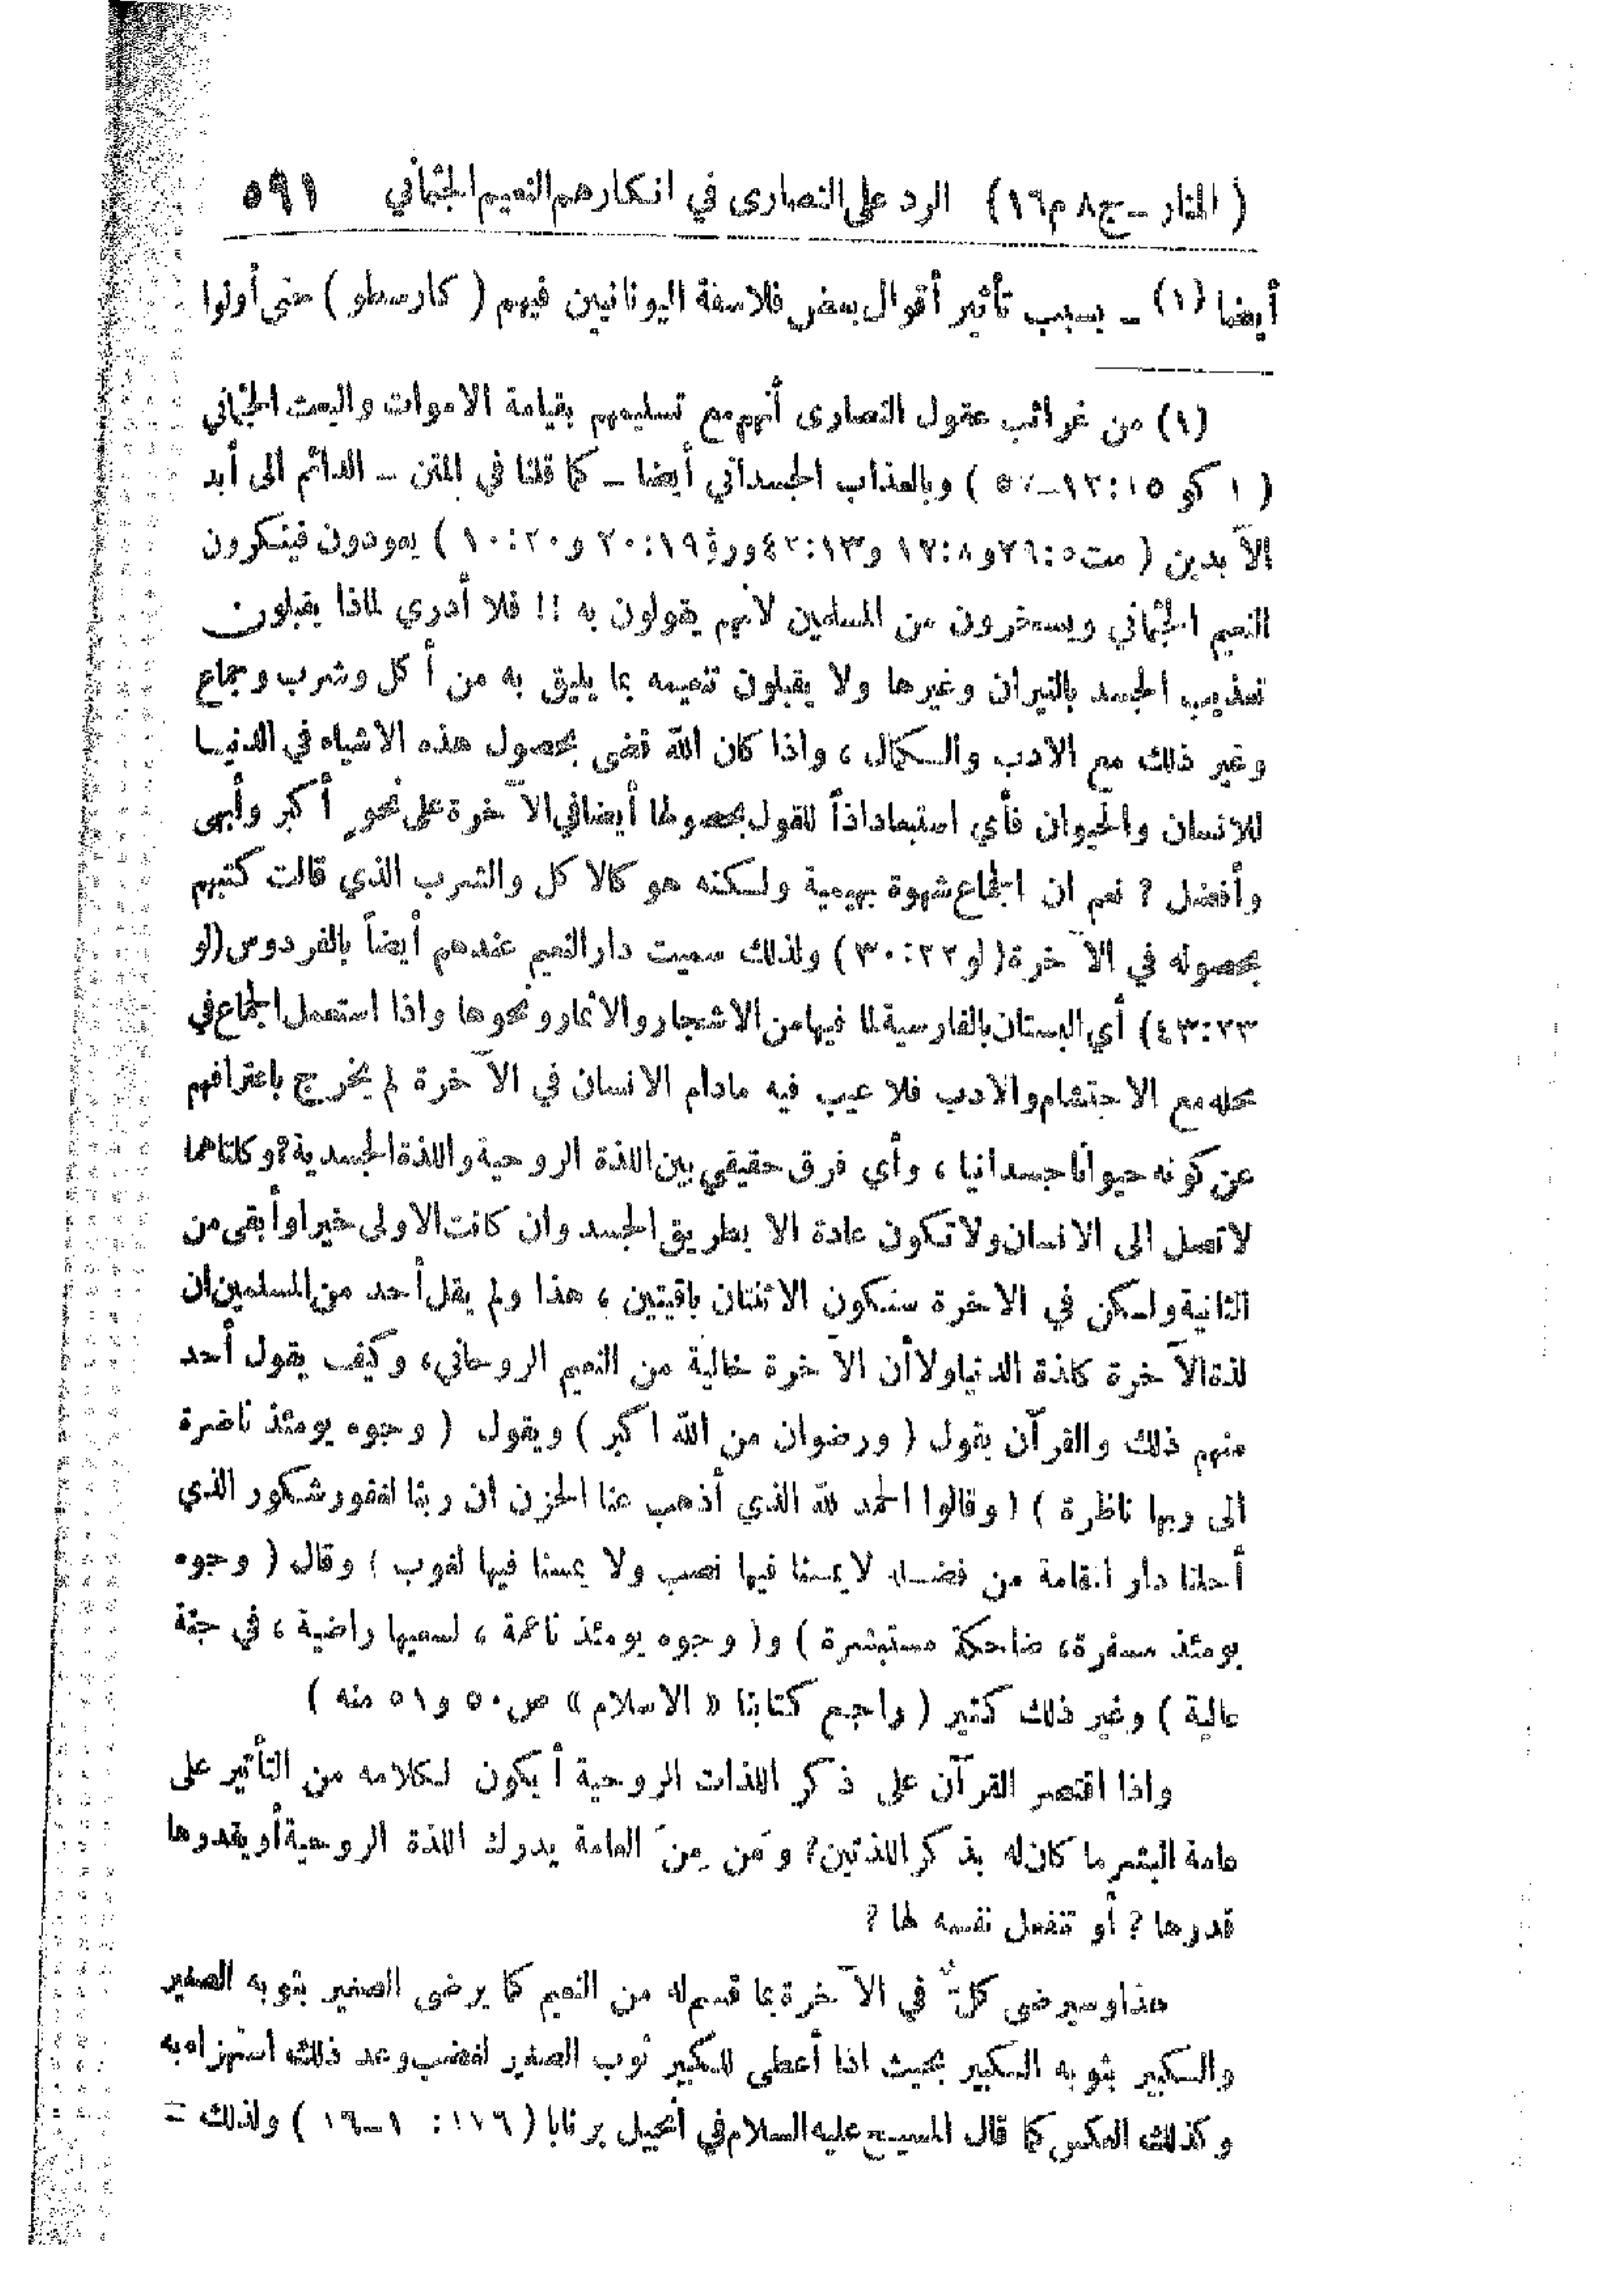 ( المنار – ج٨ م١٦ ) الرد على النصارى في انكارهم النعيم الجثماني ٥٩١
أيضا (١) – بسبب تأثير أقوال بعض فلاسفة اليونانيين فيهم ( كارسطو ) حتى أولوا
(١) من غرائب عقول النصارى أنهم مع تسليمهم بقيامة الاموات والبعث الجثماني
( ١ كو ١٥ : ١٢ – ) وبالعذاب الجسداني أيضا – كما قلنا في المتن – الدائم الى أبد
الآبدين ( مت ٥ : ٢٩ و ٨ : ١٢ و ١٣ : ٤٢ ورؤ ١٩ : ٢٠ و ٢٠ : ١٠ ) يعودون فينكرون
النعيم الجثماني ويسخرون من المسلمين لانهم يقولون به !! فلا أدري لماذا يقبلون
تعذيب الجسد بالنيران وغيرها ولا يقبلون تنعيمه بما يليق به من أكل وشرب وجماع
وغير ذلك مع الادب والكمال ، واذا كان الله قضى بحصول هذه الاشياء في الدنيا
للانسان والحيوان فأي استبعاد اذاً للقول بحصولها أيضا في الآخرة على نحوٍ أكبر وأبهى
وأفضل ? نعم ان الجماع شهوة بهيمية ولكنه هو كالاكل والشرب الذي قالت كتبهم
بحصوله في الآخرة ( لو ٢٢ : ٣٠ ) ولذلك سميت دار النعيم عندهم أيضاً بالفردوس (لو
٢٣ : ٤٣) أي البستان بالفارسية لما فيها من الاشجار والاثمار ونحوها واذا استعمل الجماع في
محله مع الاحتشام والادب فلا عيب فيه مادام الانسان في الآخرة لم يخرج باعترافهم
عن كونه حيوانا جسدانيا ، وأي فرق حقيقي بين اللذة الروحية واللذة الجسدية? وكلتاهما
لا تصل الى الانسان ولا تكون عادة الا بطريق الجسد وان كانت الاولى خيرا وأبقى من
الثانية ولكن في الآخرة ستكون الاثنتان باقيتين ، هذا ولم يقل أحد من المسلمين ان
لذة الآخرة كلذة الدنيا ولا أن الآخرة خالية من النعيم الروحاني، وكيف يقول أحد
منهم ذلك والقرآن يقول ( ورضوان من الله اكبر ) ويقول ( وجوه يومئذ ناضرة
الى ربها ناظرة ) ( وقالوا الحمد لله الذي أذهب عنا الحزن ان ربنا لغفور شكور الذي
أحلنا دار المقامة من فضله لا يمسنا فيها نصب ولا يمسنا فيها لغوب ) وقال ( وجوه
يومئذ مسفرة ، ضاحكة مستبشرة ) و( وجوه يومئذ ناعمة ، لسعيها راضية ، في جنة
عالية ) وغير ذلك كثير ( راجع كتابنا « الاسلام » ص ٥٠ و ٥١ منه )
واذا اقتصر القرآن على ذكر اللذات الروحية أيكون لكلامه من التأثير على
عامة البشر ما كان له بذكر اللذتين ? ومَن مِنَ العامة يدرك اللذة الروحية أو يقدرها
قدرها ? أو تنفعل نفسه لها ?
هذا وسيرضى كلٌّ في الآخرة بما قسم له من النعيم كما يرضى الصغير بثوبه الصغير
والكبير بثوبه الكبير بحيث اذا أعطى للكبير ثوب الصغير لغضب وعد ذلك استهزاء به
وكذلك العكس كما قال المسيح عليه السلام في انجيل برنابا ( ١٧٦ : ١ – ١٦ ) ولذلك =